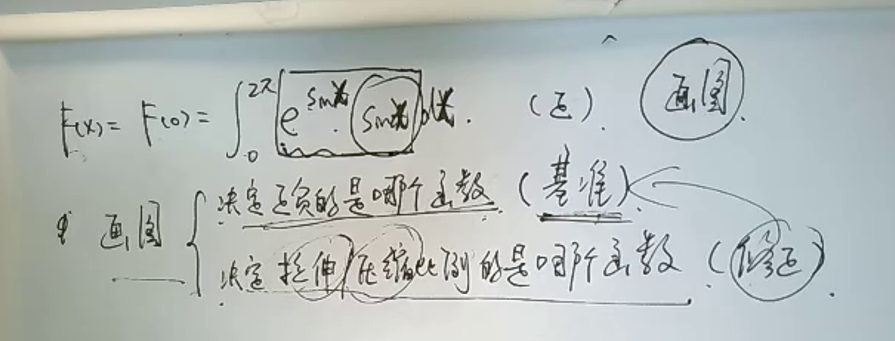 F(x) = F(0) = ∫₀^{2π} e^{sinx} · sinx dx. (正). 画图.
画图 { 决定正负的是哪个函数 (基准)
决定拉伸/压缩比例的是哪个函数 (修正).